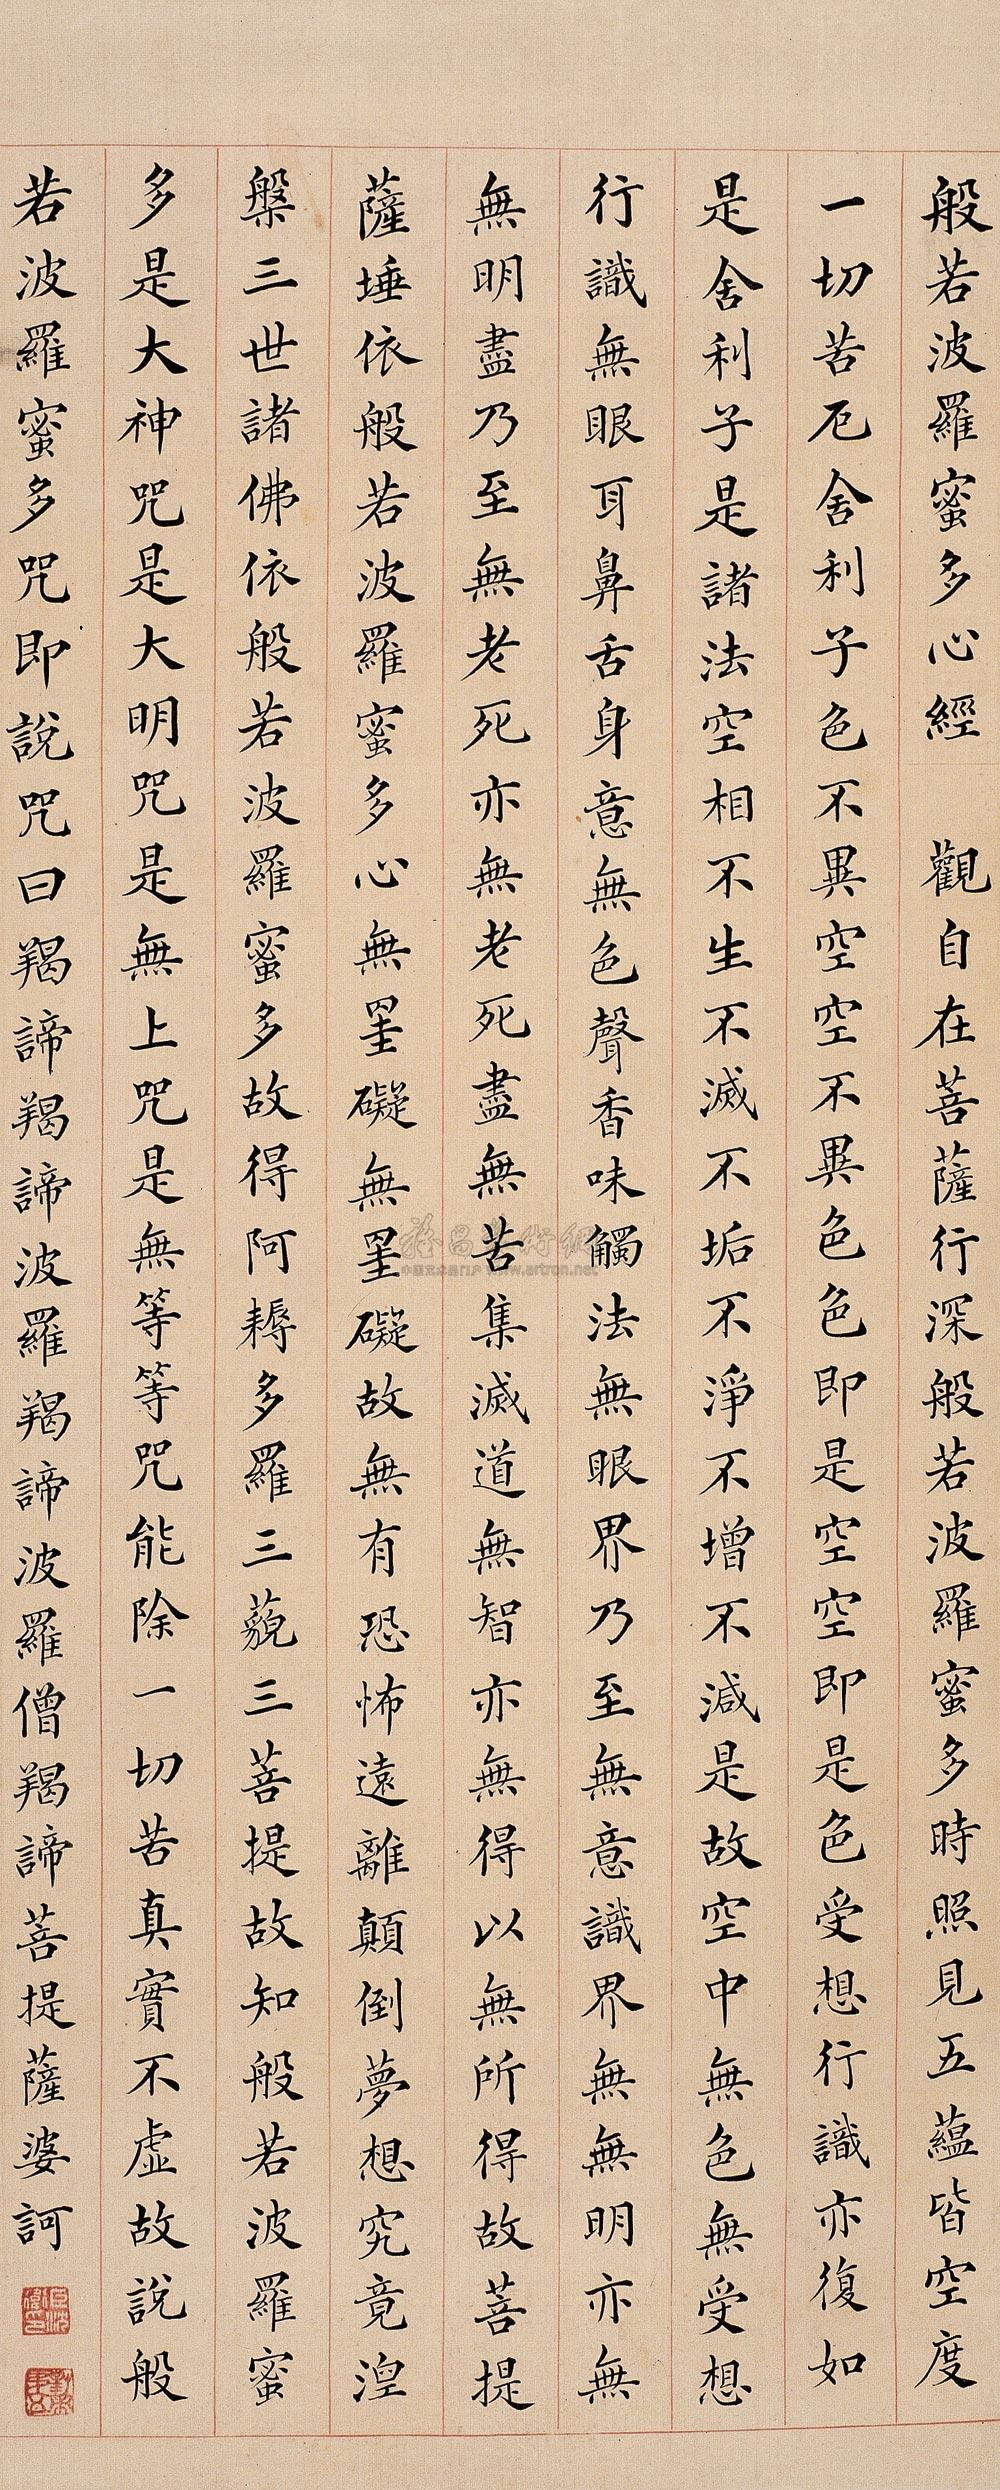 般若波羅蜜多心經 觀自在菩薩行深般若波羅蜜多時照見五蘊皆空度
一切苦厄舍利子色不異空空不異色色即是空空即是色受想行識亦復如
是舍利子是諸法空相不生不滅不垢不淨不增不減是故空中無色無受想
行識無眼耳鼻舌身意無色聲香味觸法無眼界乃至無意識界無無明亦無
無明盡乃至無老死亦無老死盡無苦集滅道無智亦無得以無所得故菩提
薩埵依般若波羅蜜多心無罣礙無罣礙故無有恐怖遠離顛倒夢想究竟涅
槃三世諸佛依般若波羅蜜多故得阿耨多羅三藐三菩提故知般若波羅蜜
多是大神咒是大明咒是無上咒是無等等咒能除一切苦真實不虛故說般
若波羅蜜多咒即說咒曰羯諦羯諦波羅羯諦波羅僧羯諦菩提薩婆訶
www.artron.net